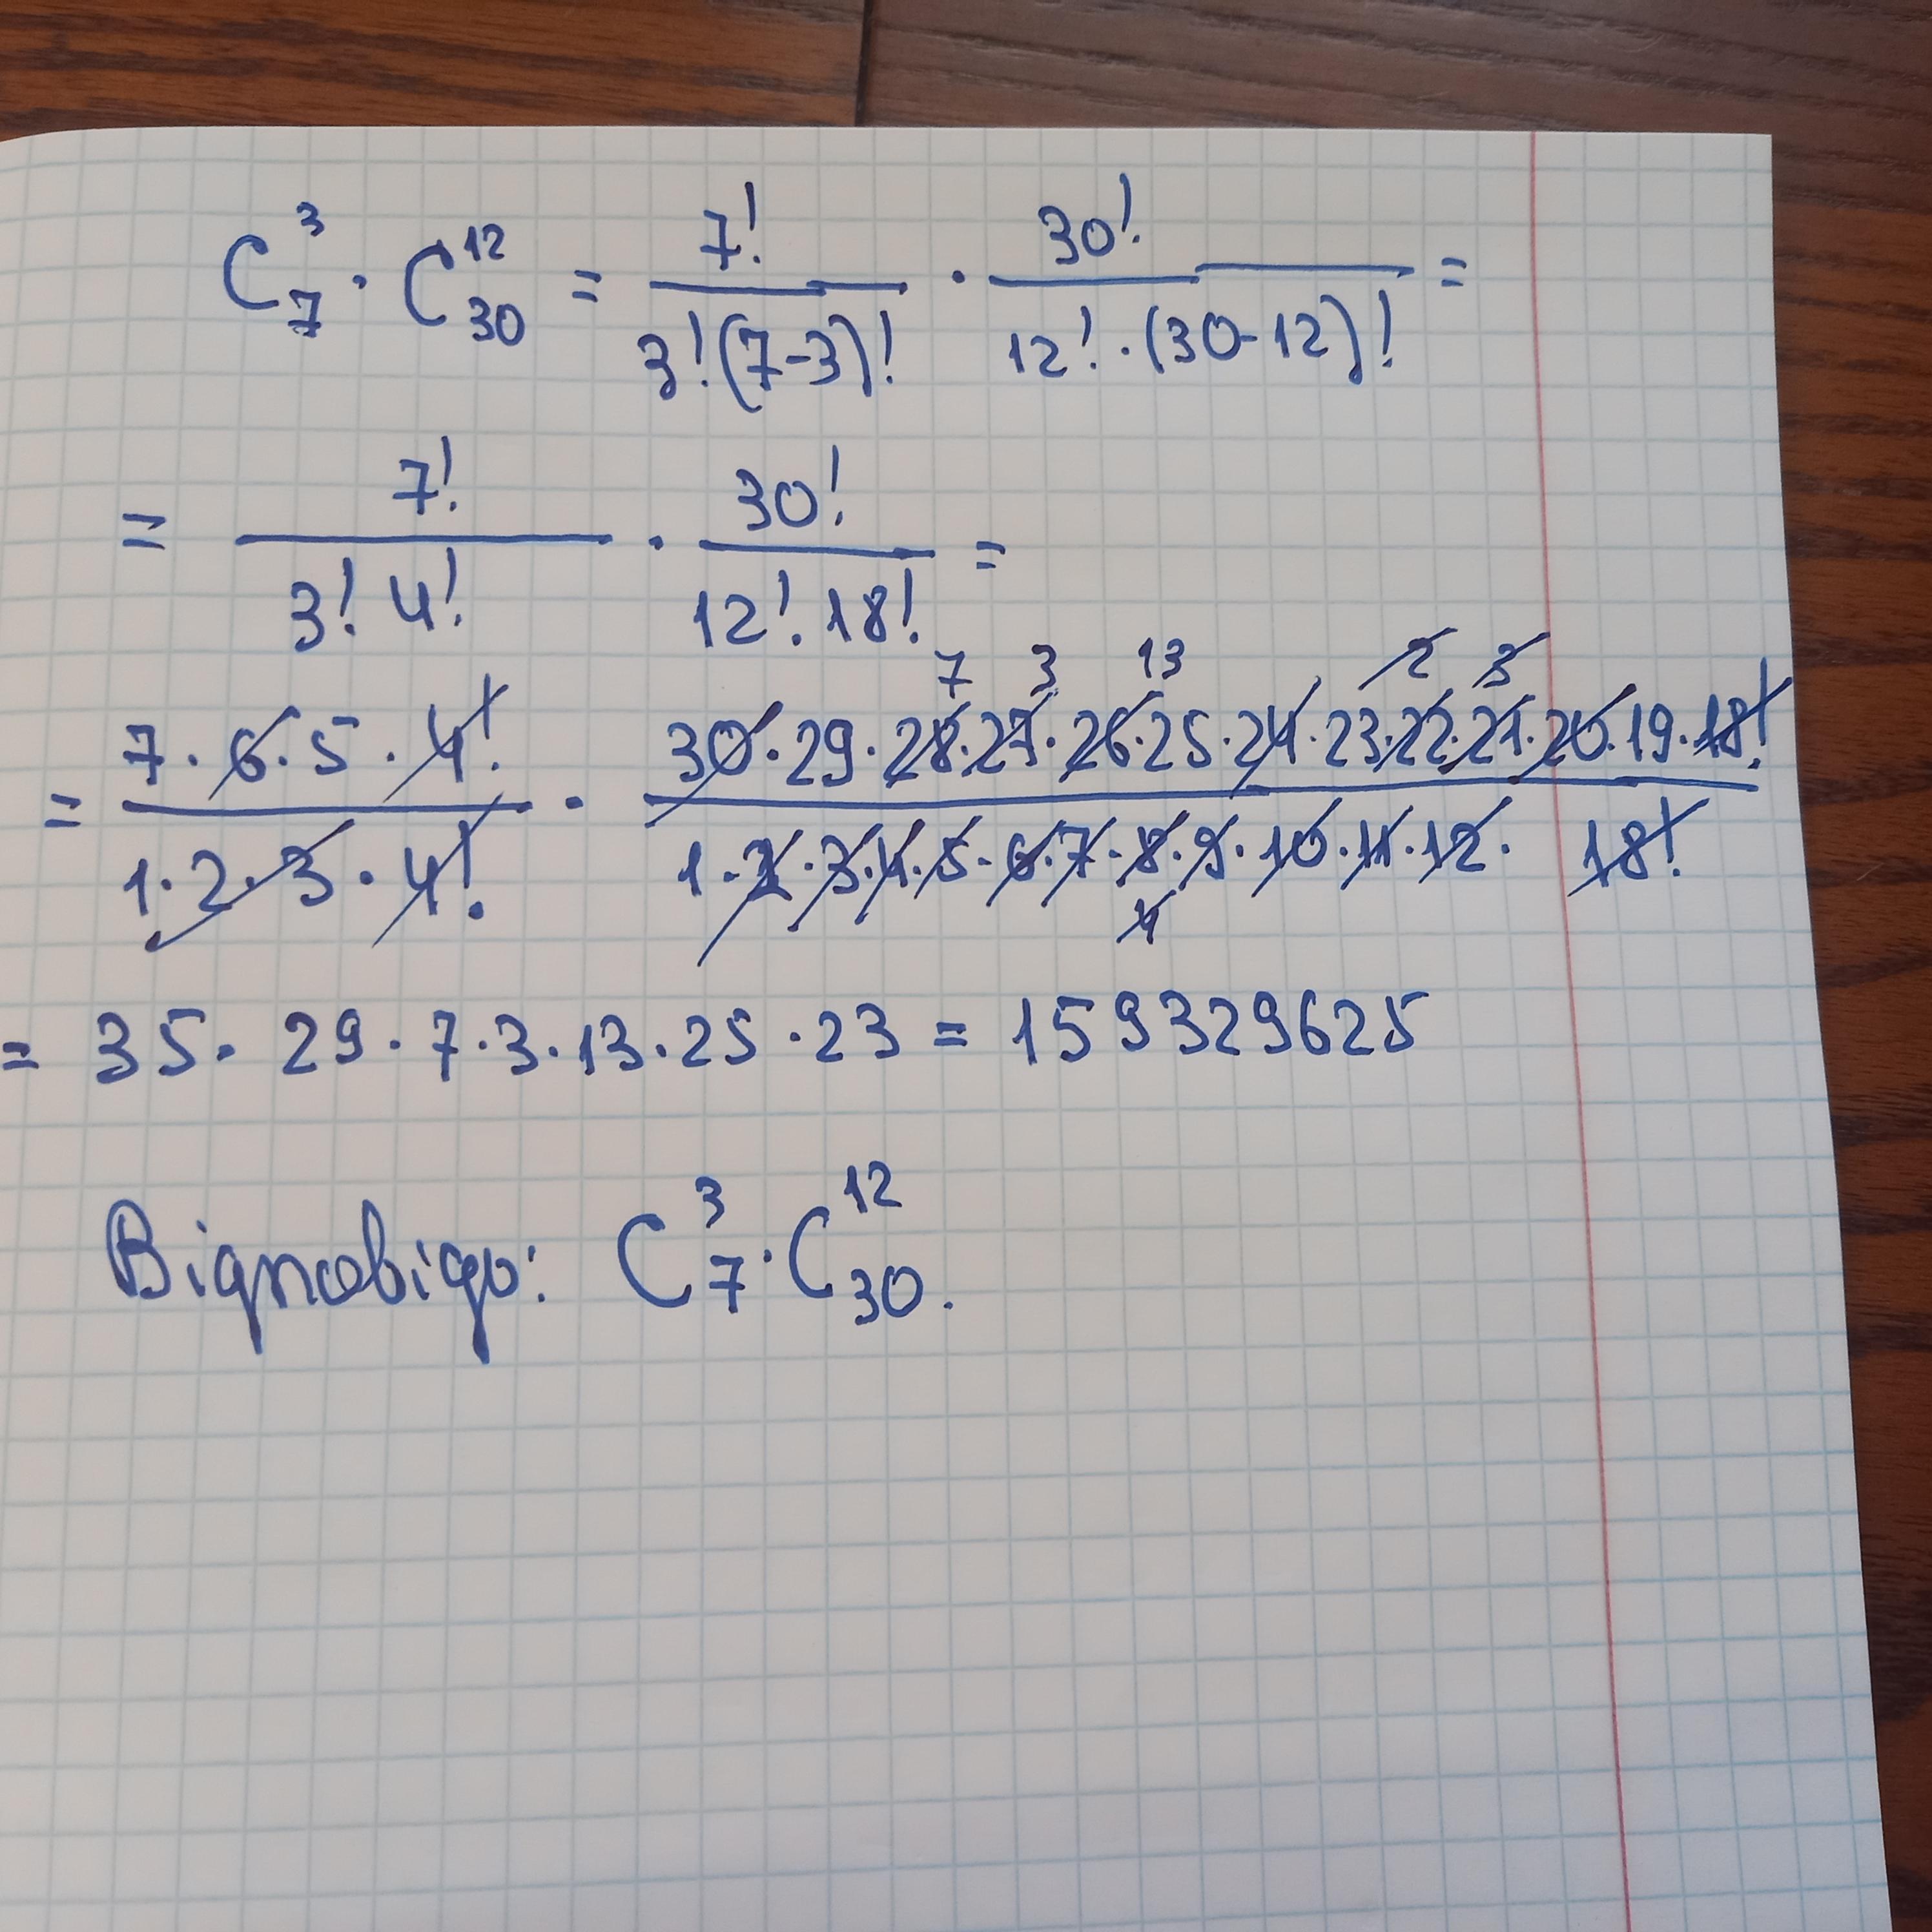 C₇³ · C₃₀¹² = 7! / 3!(7-3)! · 30! / 12!·(30-12)! =
= 7! / 3! 4! · 30! / 12! 18! =
7 3 13 2 3
= 7·6·5·4! / 1·2·3·4! · 30·29·28·27·26·25·24·23·22·21·20·19·18! / 1·2·3·4·5·6·7·8·9·10·11·12· 18!
4
= 35·29·7·3·13·25·23 = 159329625
Відповідь: C₇³·C₃₀¹².